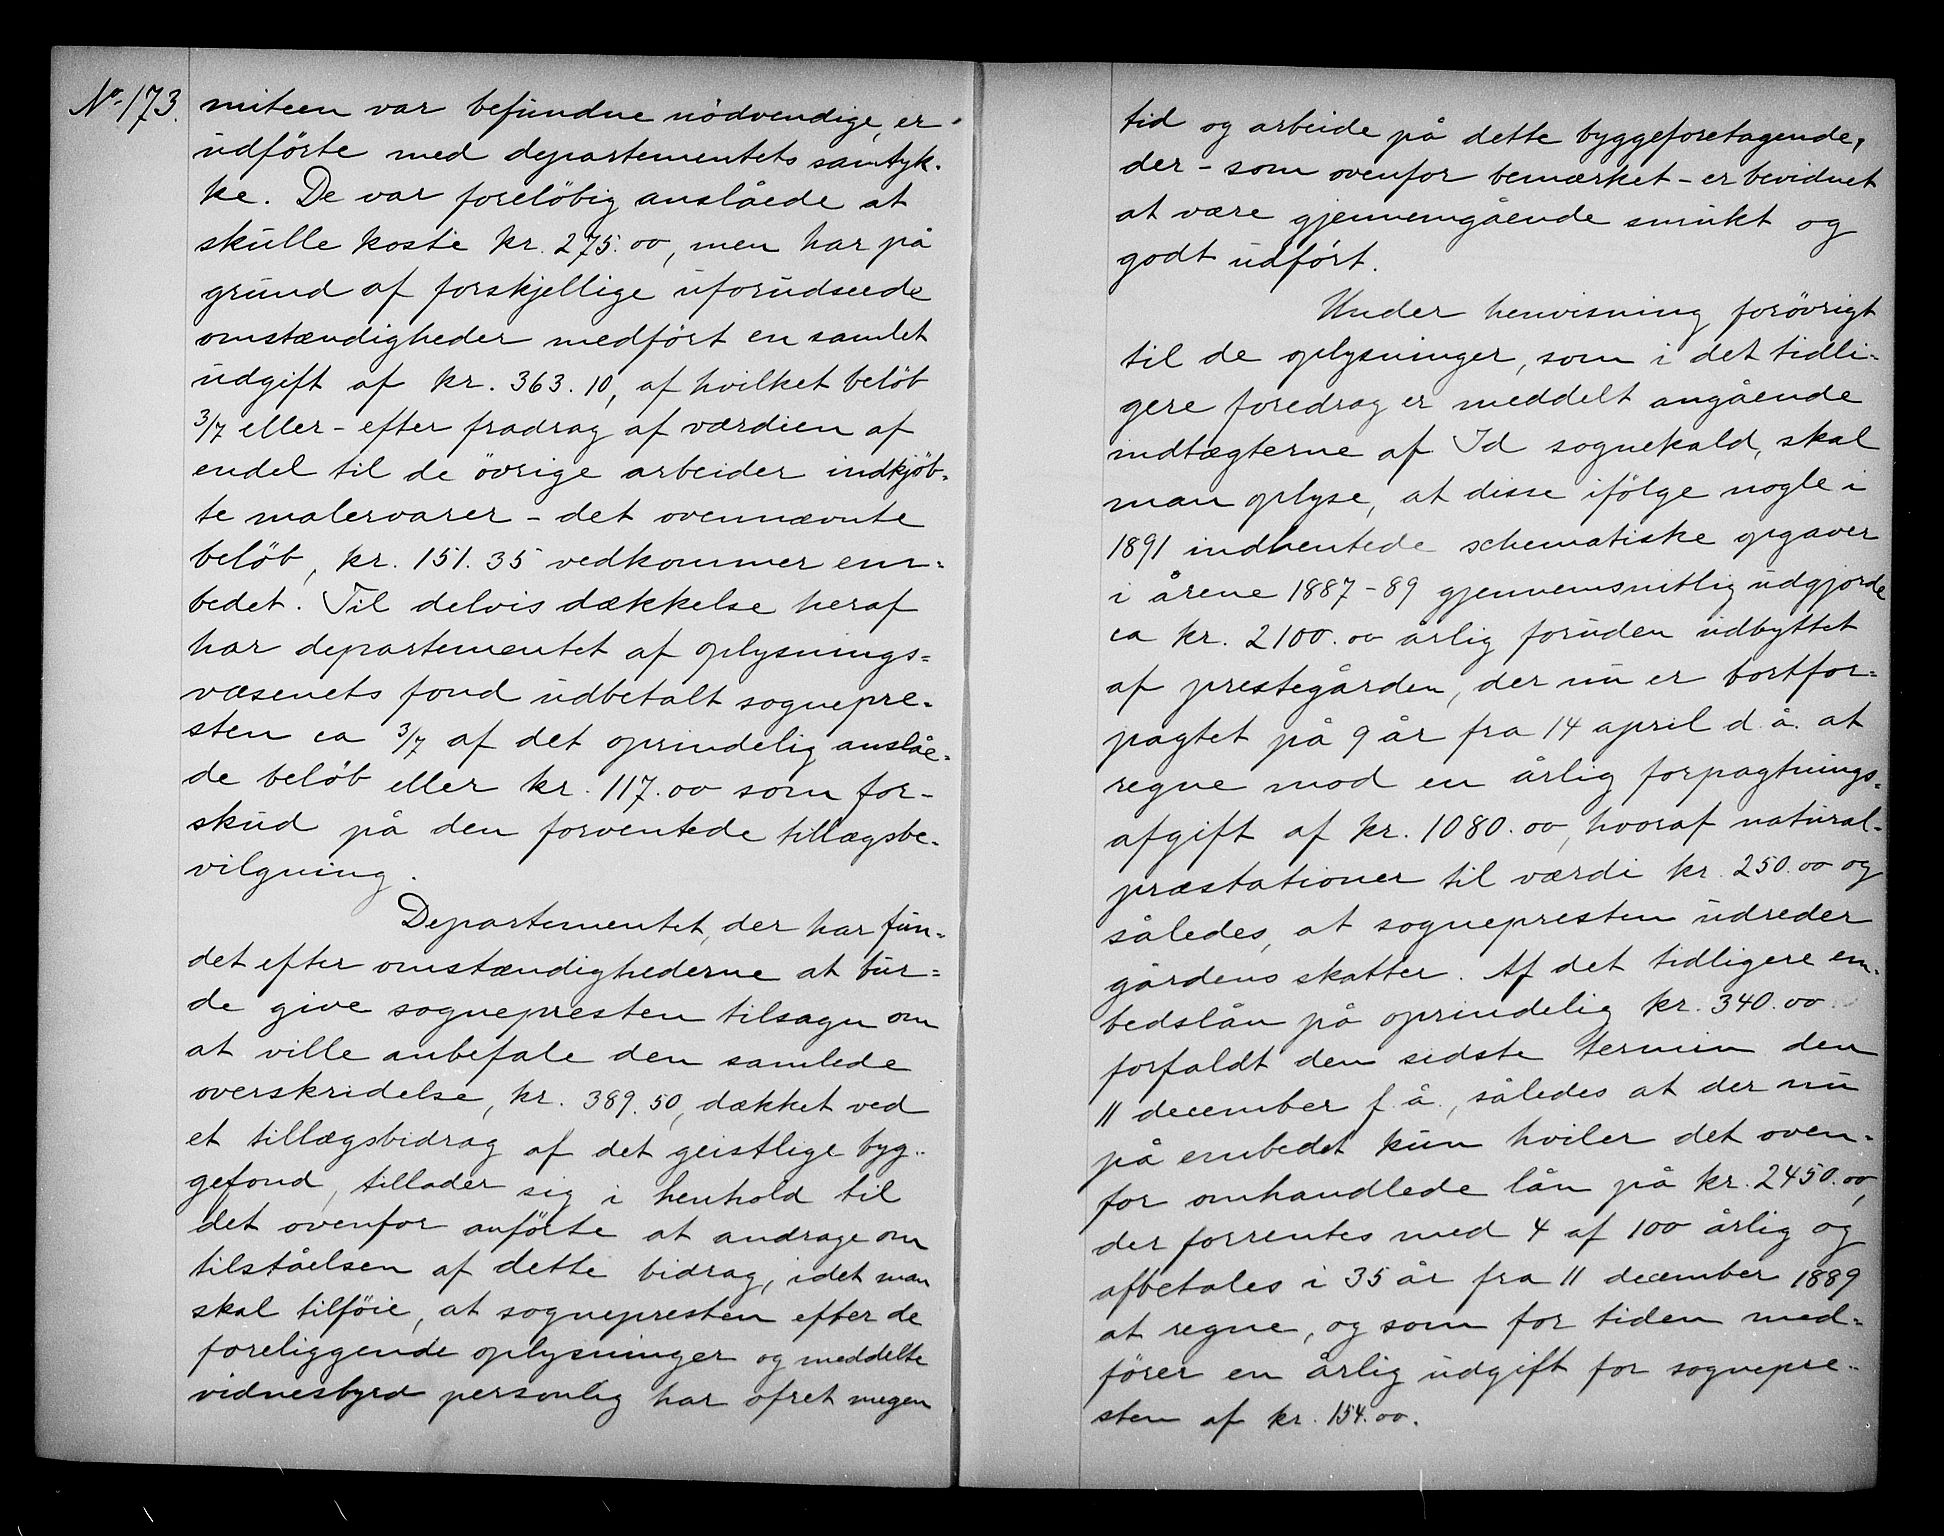 No. 173.
miteen var befundne nödvendige, er
udförte med departementets samtyk-
ke. De var forelöbig anslåede at
skulle koste kr. 275.00, men har på
grund af forskjellige uforudseede
omstændigheder medfört en samlet
udgift af kr. 363.10, af hvilket belöb
3/7 eller - efter fradrag af værdien af
endel til de övrige arbeider indkjöb-
te malervarer - det ovennævnte
belöb, kr. 151.35 vedkommer em-
bedet. Til delvis dækkelse heraf
har departementet af oplysnings-
væsenets fond udbetalt sognepre-
sten ca 3/7 af det oprindelig anslåe-
de belöb eller kr. 117.00 som for-
skud på den forventede tillægsbe-
vilgning.
Departementet, der har fun-
det efter omstændighederne at bur-
de give sognepresten tilsagn om
at ville anbefale den samlede
overskridelse, kr. 389.50, dækket ved
et tillægsbidrag af det geistlige byg-
gefond, tillader sig i henhold til
det ovenfor anförte at andrage om
tilståelsen af dette bidrag, idet man
skal tilföie, at sognepresten efter de
foreliggende oplysninger og meddelte
vidnesbyrd personlig har ofret megen
tid og arbeide på dette byggeforetagende,
der - som ovenfor bemærket - er bevidnet
at være gjennemgående smukt og
godt udfört.
Under henvisning forövrigt
til de oplysninger, som i det tidli-
gere foredrag er meddelt angående
indtægterne af Id sognekald, skal
man oplyse, at disse ifölge nogle i
1891 indhentede schematiske opgaver
i årene 1887-89 gjennemsnitlig udgjorde
ca kr. 2100.00 årlig foruden udbyttet
af prestegården, der nu er bortfor-
pagtet på 9 år fra 14 april d. å. at
regne mod en årlig forpagtnings-
afgift af kr. 1080.00, hvoraf natural-
præstationer til værdi kr. 250.00 og
således, at sognepresten udreder
gårdens skatter. Af det tidligere em-
bedslån på oprindelig kr. 340.00
forfaldt den sidste termin den
11 december f. å., således at der nu
på embedet kun hviler det oven-
for omhandlede lån på kr. 2450.00,
der forrentes med 4 af 100 årlig og
afbetales i 35 år fra 11 december 1889
at regne, og som for tiden med-
förer en årlig udgift for sognepre-
sten af kr. 154.00.